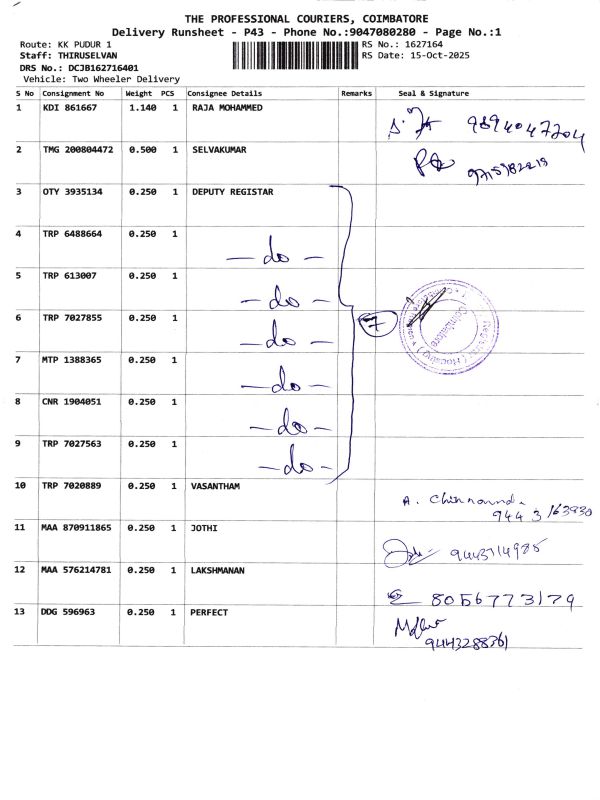 THE PROFESSIONAL COURIERS, COIMBATORE
Delivery Runsheet - P43 - Phone No.:9047080280 - Page No.:1
Route: KK PUDUR 1 RS No.: 1627164
Staff: THIRUSELVAN RS Date: 15-Oct-2025
DRS No.: DCJB162716401
Vehicle: Two Wheeler Delivery
S No Consignment No Weight PCS Consignee Details Remarks Seal & Signature
1 KDI 861667 1.140 1 RAJA MOHAMMED
2 TMG 200804472 0.500 1 SELVAKUMAR
3 OTY 3935134 0.250 1 DEPUTY REGISTAR
4 TRP 6488664 0.250 1 -do-
5 TRP 613007 0.250 1 -do-
6 TRP 7027855 0.250 1 -do- 7
7 MTP 1388365 0.250 1 -do-
8 CNR 1904051 0.250 1 -do-
9 TRP 7027563 0.250 1 -do-
10 TRP 7020889 0.250 1 VASANTHAM A.
944 3 163930
11 MAA 870911865 0.250 1 JOTHI
12 MAA 576214781 0.250 1 LAKSHMANAN 8056773179
13 DDG 596963 0.250 1 PERFECT
9443288361
Coimbatore
(Housing)